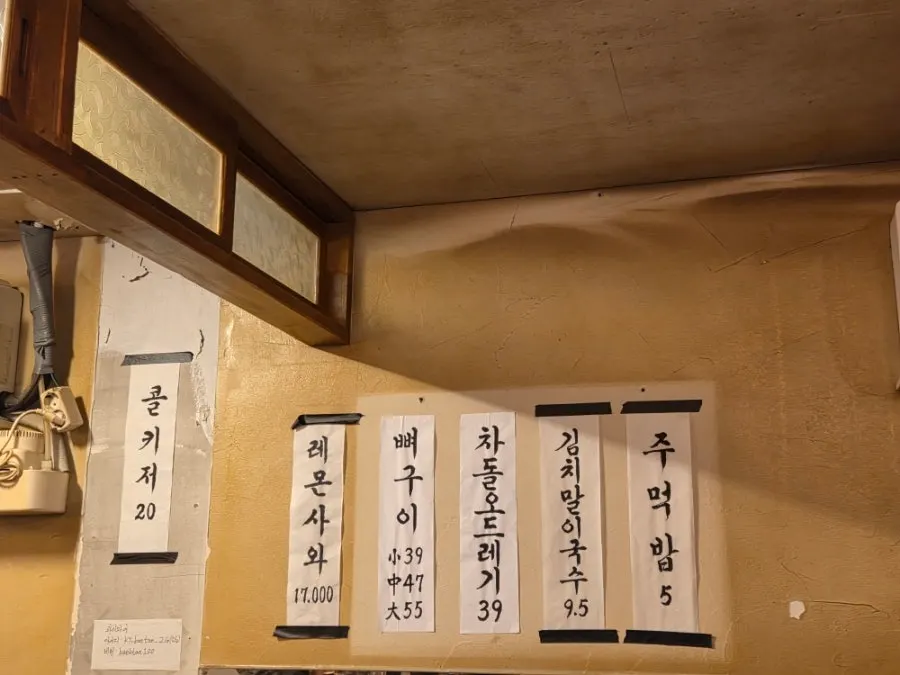 콜키저
20
레몬사와
17.000
뼈구이
小39
中47
大55
차돌오드레기
39
김치말이국수
9.5
주먹밥
5